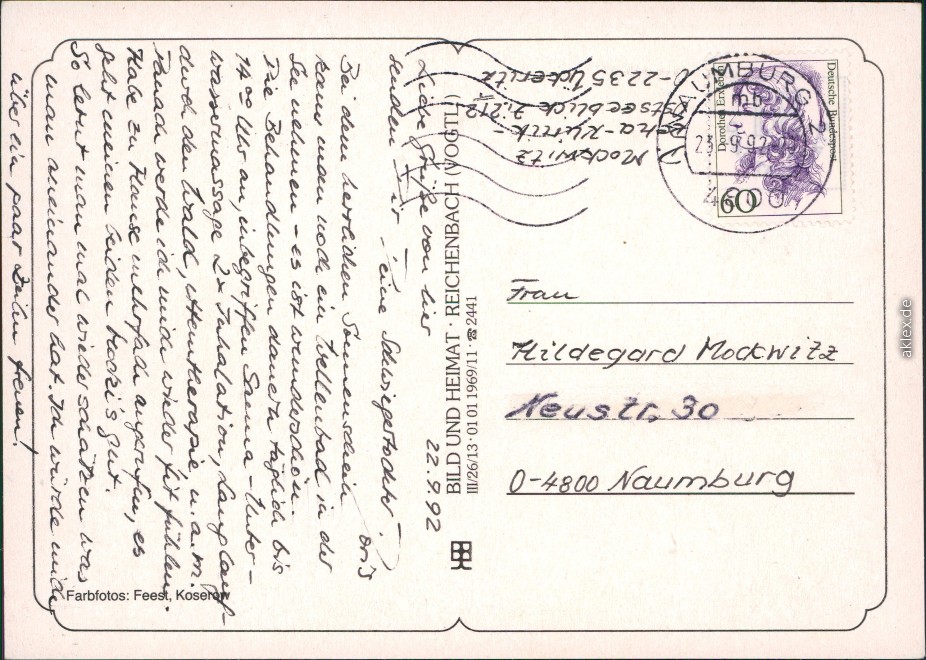 22.9.92
Liebe Grüße von hier
sendet dir eine Schwiegertochter
Bei dem herrlichen Sonnenschein
kann man noch ein Wellenbad in der
See nehmen - es ist wunderschön.
Die Behandlungen dauern täglich bis
14 00 Uhr an, inbegriffen Sauna - Unter-
wassermassage 2x Inhalation, Langlauf
durch den Wald, Atemtherapie u.a.m.
Danach werde ich mich wieder fit fühlen.
Habe zu Hause mehrfach angerufen, es
geht meinen beiden Mocki's gut.
So lernt man mal wieder schätzen was
man aneinander hat. Ich würde mich
über ein paar Zeilen freuen!
D. Mockwitz
-Klinik-
Ostseeblick
O-2235 Ückeritz
BILD UND HEIMAT · REICHENBACH (VOGTL)
III/26/13 · 01 01 1969/11 · ☎ 2441
Farbfotos: Feest, Koserow
Deutsche Bundespost
60
UMBURG
mb
Frau
Hildegard Mockwitz
Neustr. 30
O-4800 Naumburg
aklex.de